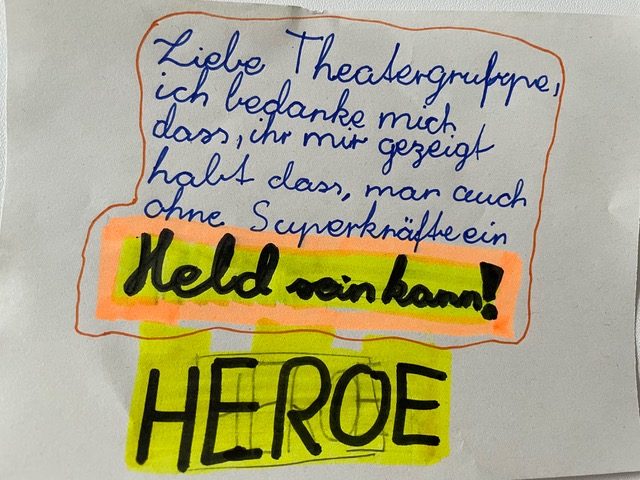 Liebe Theatergruppe,
ich bedanke mich
dass, ihr mir gezeigt
habt dass, man auch
ohne Superkräfte ein
Held sein kann!
HEROE